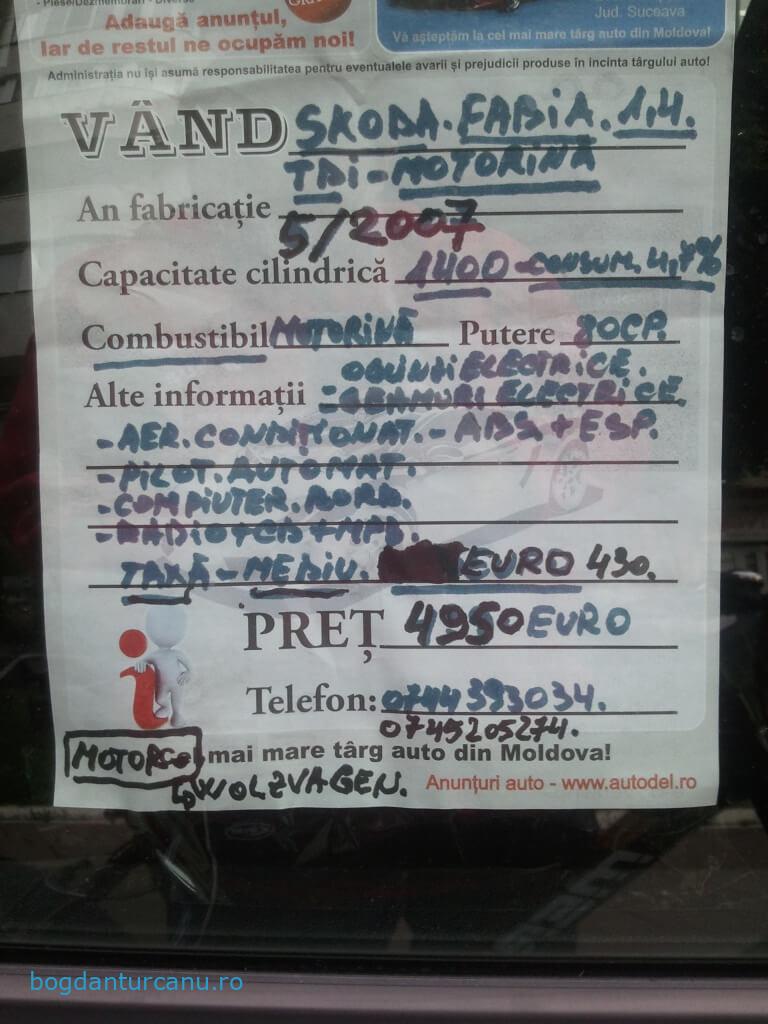 - Piese/Dezmembrari - Diverse
Adaugă anunţul,
Iar de restul ne ocupăm noi!
Jud. Suceava
Vă aşteptăm la cel mai mare târg auto din Moldova!
Administraţia nu îşi asumă responsabilitatea pentru eventualele avarii şi prejudicii produse în incinta târgului auto!
VÂND SKODA. FABIA. 1,4.
TDi-MOTORINĂ
An fabricaţie
5/2007
Capacitate cilindrică 1400-CONSUM. 4,7%
Combustibil MOTORINĂ Putere 80CP.
OGLINZI ELECTRICE.
Alte informaţii -GEAMURI ELECTRICE.
-AER.CONDIŢIONAT.-ABS+ESP.
-PILOT.AUTOMAT.
-COMPIUTER.BORD.
-RADIO+CD+MP3.
TAXĂ-MEDIU. EURO 430.
PREŢ 4950EURO
Telefon: 0744393034.
0745205274.
mai mare târg auto din Moldova!
WOLZVAGEN.
Anunţuri auto - www.autodel.ro
bogdanturcanu.ro